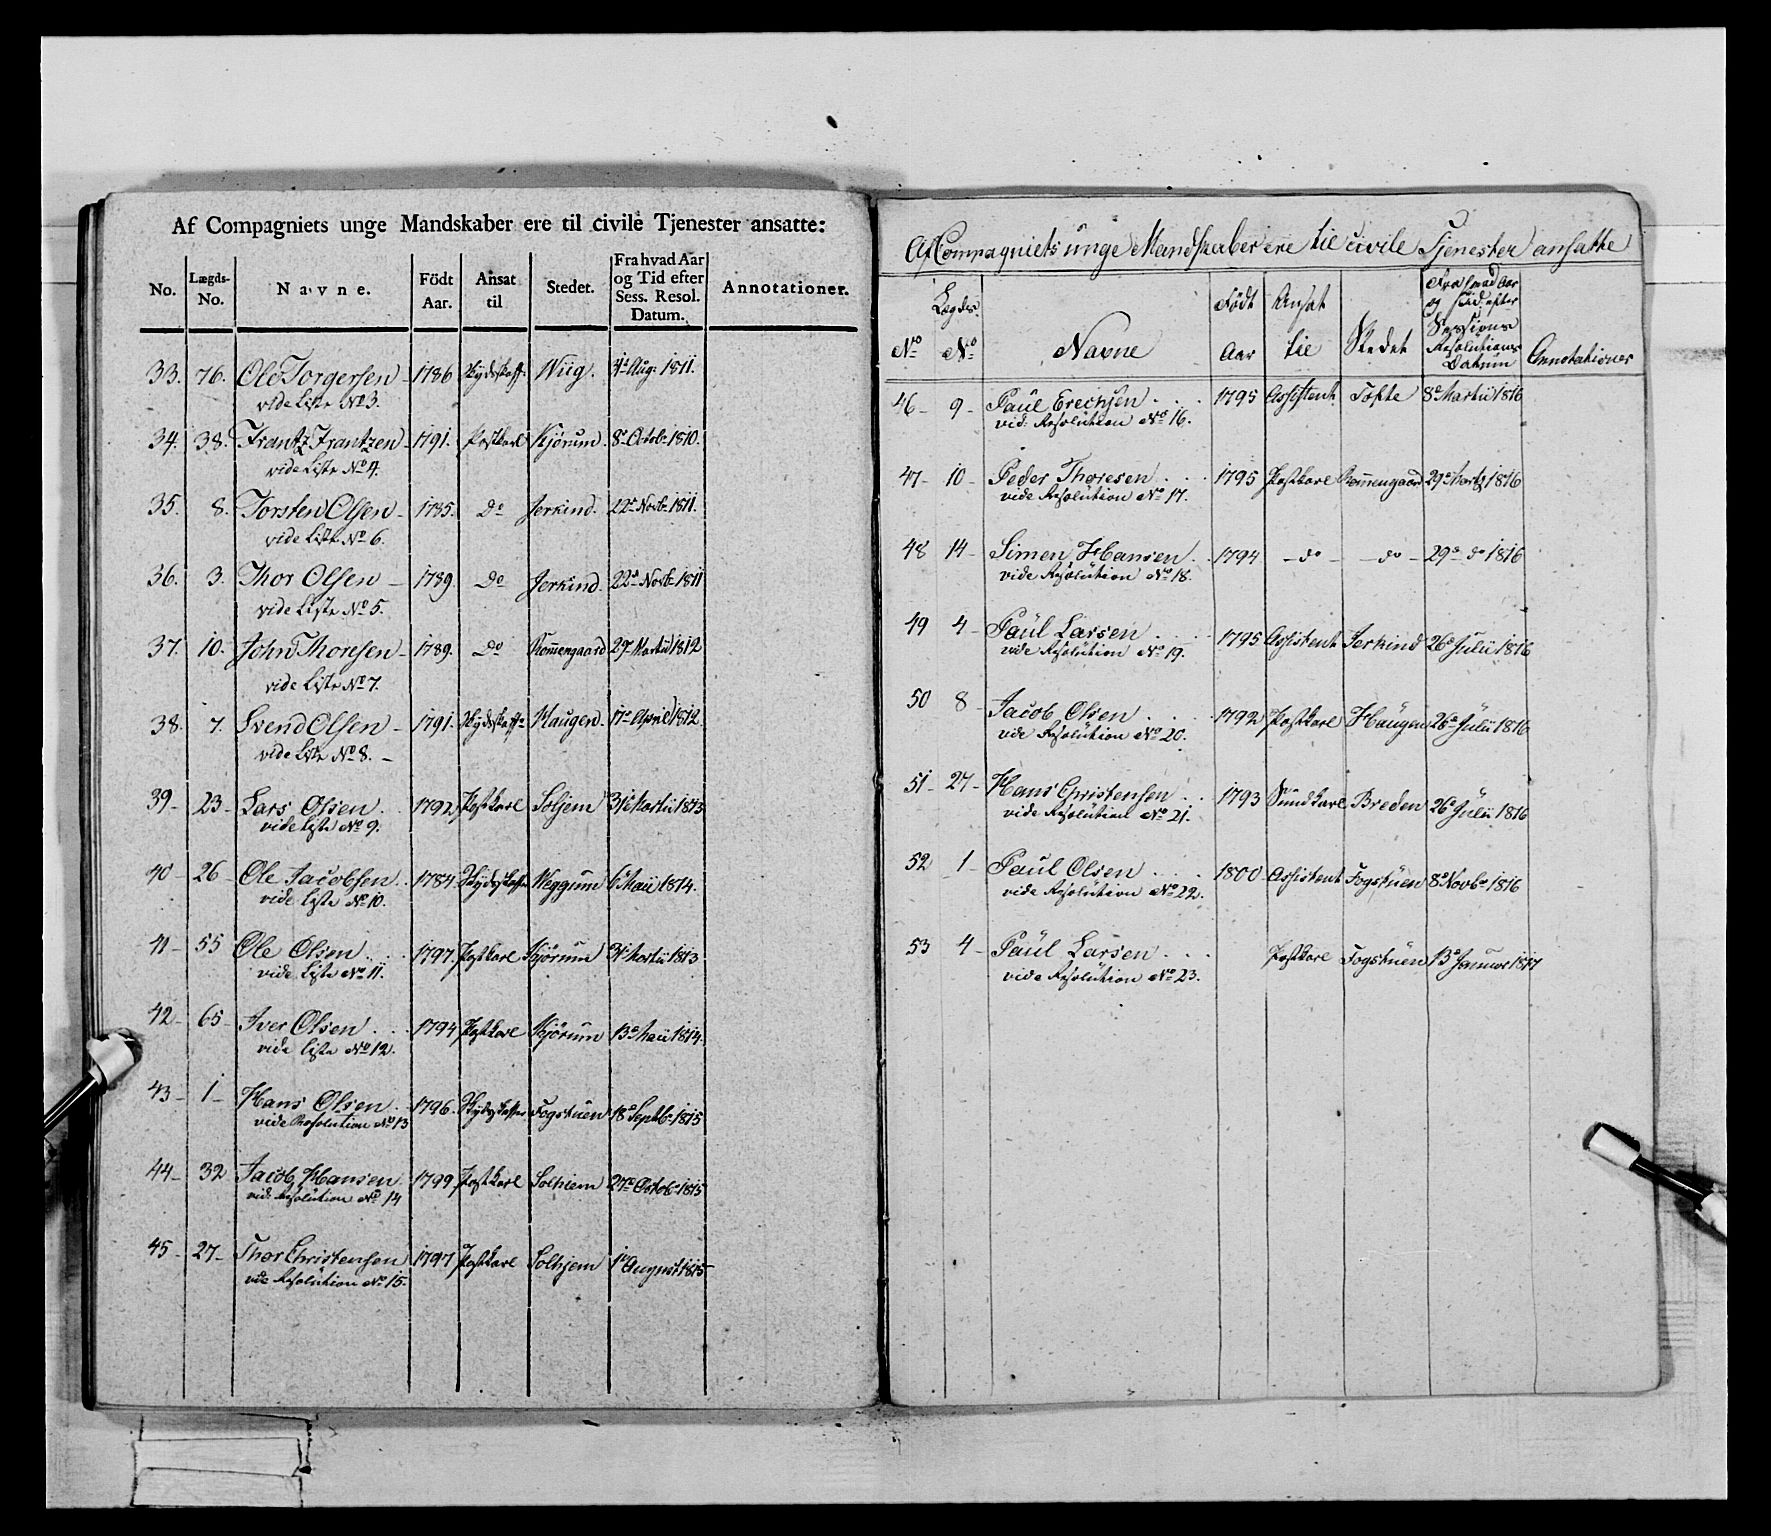 Af Compagniets unge Mandskaber ere til civile Tjenester ansatte:
No. Lægds-No. Navne. Födt Aar. Ansat til Stedet. Fra hvad Aar og Tid efter Sess. Resol. Datum. Annotationer.
33. 76. Ole Torgersen 1786 Skydsskaff. Wiig. 31te Aug: 1811.
vide Liste No 3.
34. 38. Frantz Frantzen 1791. Postkarl Kjørum. 8de Octob. 1810.
vide Liste No 4.
35. 8. Torsten Olsen 1785. Do Jerkind. 22de Novb. 1811.
vide Liste No 6.
36. 3. Thor Olsen 1789. Do Jerkind. 22de Novb. 1811
vide Liste No 5.
37. 10. John Thoresen 1789. Do Rommengaard 29de Martii 1812
vide Liste No 7.
38. 7. Svend Olsen 1791. Skydsskaffe Haugen. 17de April 1812.
vide Liste No 8.
39 23 Lars Olsen 1792 Postkarl Solhjem 31te Martii 1813
vide liste No 9.
40 26 Ole Jacobsen 1784 Skydsskaffer Weggum 6te Maii 1814.
vide liste No 10.
41 55 Ole Olsen 1797. Postkarl Kjörum 31te Martii 1813
vide liste No 11.
42 65 Iver Olsen 1794 Postkarl Kjörum 13de Maii 1814.
vide liste No 12.
43 1 Hans Olsen 1796. Skydsskaffer Fogstuen 18de Septb. 1815
vide Resolution No 13
44 32 Jacob Hansen 1799 Postkarl Solhiem 27de Octob. 1815
vide Resolution No 14
45 27 Thor Christensen 1797 Postkarl Solhjem 1te August 1815
vide Resolution No 15.
Af Compagniets unge Mandskaber ere til civile Tjenester ansatte
No Lægds No Navne Födt Aar Ansat til Stedet Fra hvad Aar og Tid efter Sessions Resolutions Datum Annotationer
46 9 Paul Erechsen 1795 Assistent Tofte 8de Martii 1816
vid: Resolution No 16.
47 10 Peder Thoresen 1795 Postkarl Rommengaard 29de Martz 1816
vide Resolution No 17.
48 14 Simen Hansen 1794 do do 29de do 1816
vide Resolution No 18.
49 4 Paul Larsen 1795 Assistent Jerkind 26de Julii 1816
vide Resolution No 19.
50 8 Jacob Olsen 1792 Postkarl Haugen 26de Julii 1816
vide Resolution No 20.
51 27 Hans Christensen 1793 Sundkarl Breden 26de Julii 1816
vide Resolution No 21.
52 1 Paul Olsen 1800 Assistent Fogstuen 8de Novbr 1816
vide Resolution No 22.
53 4 Paul Larsen Postkarl Fogstuen 13de Januar 1817
vide Resolution No 23.